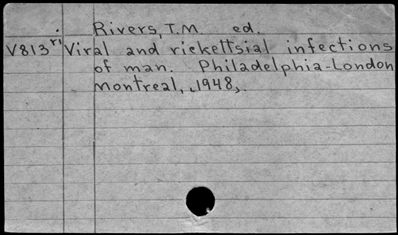 Rivers, T.M. ed.
V813ri Viral and rickettsial infections
of man. Philadelphia-London
Montreal, 1948.